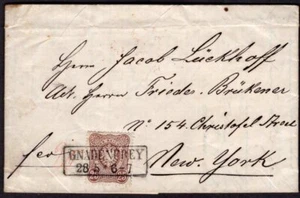 Herrn Jacob Lückhoff
Adr. Herrn Frieder. Brükener
No 154. Christofel Street
New-York
per
GNADENFREY
26 5 * 6-7